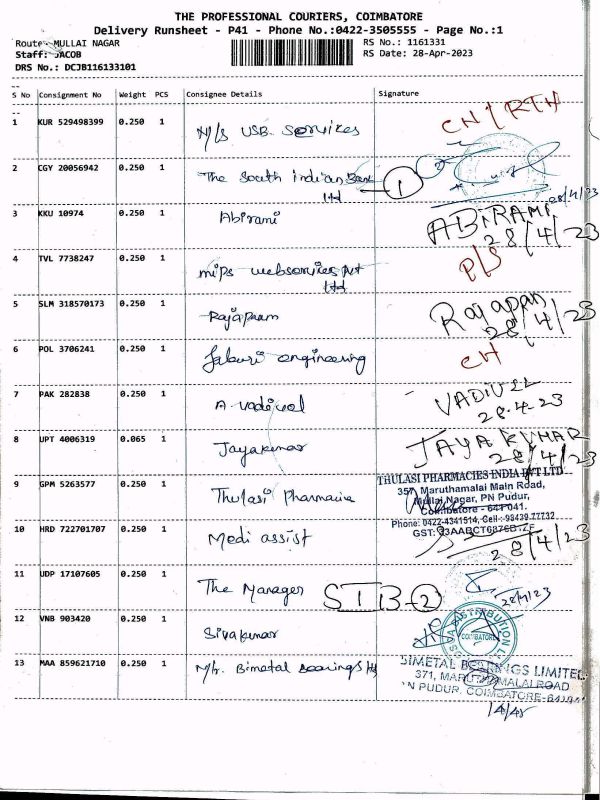 THE PROFESSIONAL COURIERS, COIMBATORE
Delivery Runsheet - P41 - Phone No.:0422-3505555 - Page No.:1
Route: MULLAI NAGAR
RS No.: 1161331
Staff: JACOB
RS Date: 28-Apr-2023
DRS No.: DCJB116133101
S No Consignment No Weight PCS Consignee Details Signature
1 KUR 529498399 0.250 1 M/s USB Services
2 CGY 20056942 0.250 1 The South Indian Bank
Ltd 1 28/4/23
3 KKU 10974 0.250 1 Abirami ABIRAMI
28/4/23
4 TVL 7738247 0.250 1 mips webservices Pvt P/S
Ltd
5 SLM 318570173 0.250 1 Rajapan
28/4/23
6 POL 3706241 0.250 1 engineering CH
7 PAK 282838 0.250 1 A. vadivel VADIVEL
28.4.23
8 UPT 4006319 0.065 1 Jayakumar JAYAKUMAR
28/4/23
9 GPM 5263577 0.250 1 Thulasi Pharmacies THULASI PHARMACIES INDIA PVT LTD
357, Maruthamalai Main Road,
Mullai Nagar, PN Pudur,
Coimbatore - 641 041.
Phone: 0422-4341514, Cell: 98439-77732
GST:
10 HRD 722701707 0.250 1 Medi assist
28/4/23
11 UDP 17107605 0.250 1 The Manager STB-2 28/4/23
12 VNB 903420 0.250 1 Sivakumar
DISTRIBUTION
COIMBATORE
13 MAA 859621710 0.250 1 M/s. Bimetal bearings ltd BIMETAL BEARINGS LIMITED
371, MARUTHAMALAI ROAD
PN PUDUR, COIMBATORE-641041